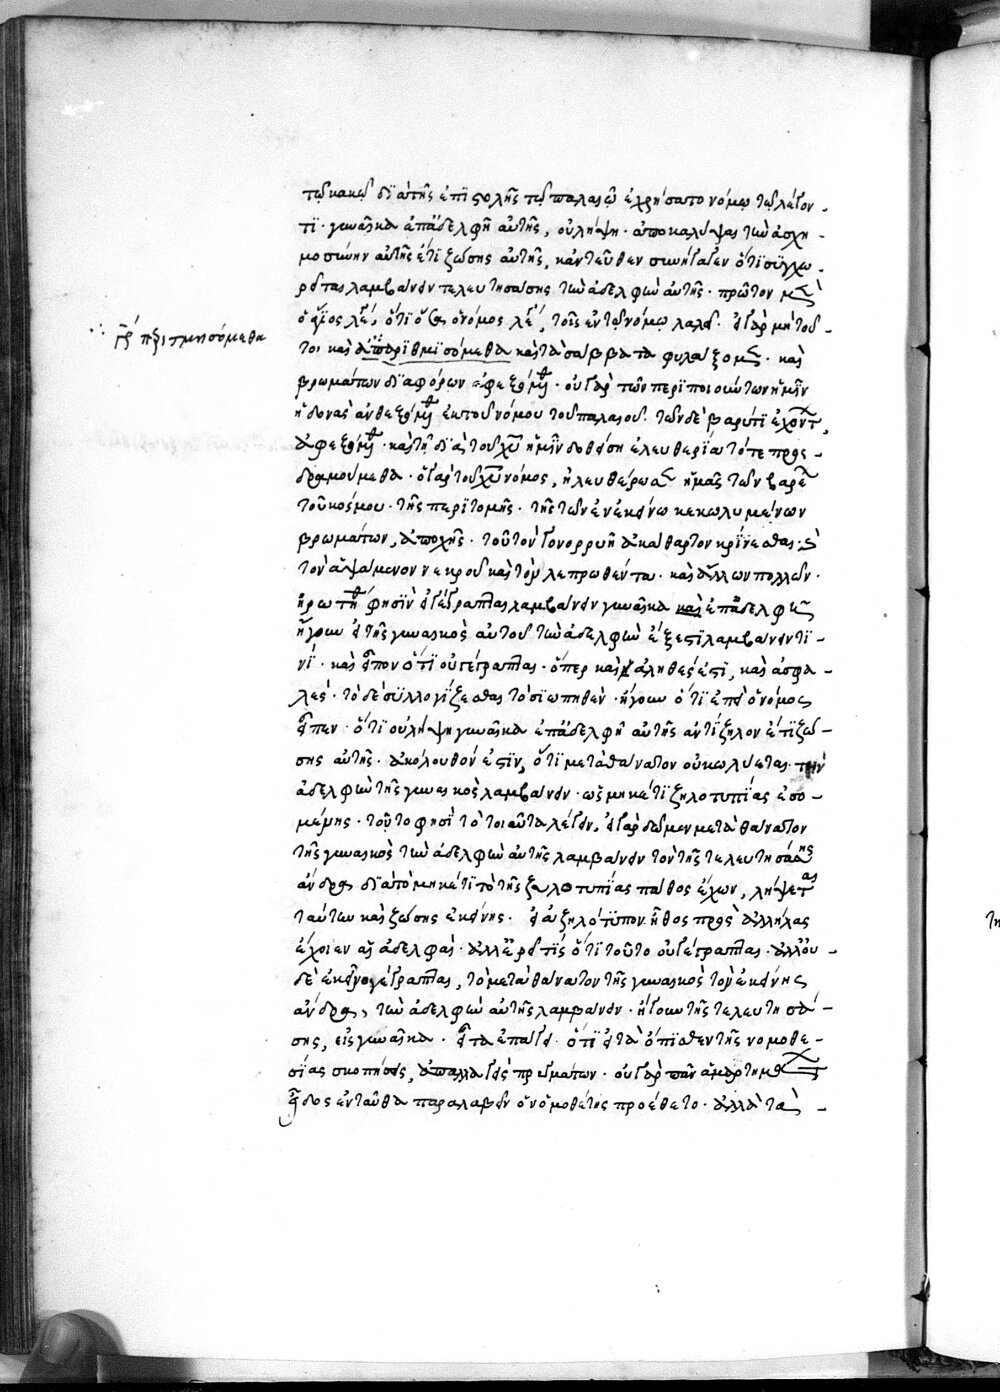 τῷ κακῷ διὰ τῆς ἐπιστολῆς τῷ παλαιῷ ἐχρήσατο νόμῳ τῷ λέγον
τι· γυναῖκα ἐπ' ἀδελφῇ αὐτῆς, οὐ λήψῃ· ἀποκαλύψαι τὴν ἀσχη
μοσύνην αὐτῆς ἔτι ζώσης αὐτῆς, κἀντεῦθεν συνήγαγεν ὅτι συγχω
λαμβάνειν τελευτησάσης τὴν ἀδελφὴν αὐτῆς· πρῶτον μὲν
ὅτι ὅσα ὁ νόμος λέγει, τοῖς ἐν τῷ νόμῳ λαλεῖ. εἰ γὰρ μὴ τοῦ
γρ περιτμηθησόμεθα
το καὶ ἀπαριθμισόμεθα καὶ τὰ σάββατα φυλάξομεν· καὶ
βρωμάτων διαφόρων ἀφεξόμεθα· οὐ γὰρ τῶν περιποιούντων ἡμῖν
ἡδονὰς ἀνθεξόμεθα ἐκ τοῦ νόμου τοῦ παλαιοῦ· τῶν δὲ βαρύτι ἐχόντ
ἀφεξόμεθα· καὶ τῇ διὰ τοῦ χυ ἡμῖν δοθείσῃ ἐλευθερίᾳ τότε προς
δραμούμεθα· ὁ γὰρ τοῦ χυ νόμος, ἠλευθέρωσεν ἡμᾶς τῶν βαρέ
τοῦ κόσμου· τῆς περιτομῆς· τῆς τῶν ἐν ἐκείνῳ κεκωλυμένων
βρωμάτων, ἀποχῆς· τοῦ τὸν γονορρυῆ ἀκάθαρτον κρίνεσθαι·
τὸν ἁψάμενον νεκροῦ καὶ τὸν λεπρωθέντα· καὶ ἄλλων πολλῶν·
φησὶν εἰ γέγραπται λαμβάνειν γυναῖκα καὶ ἐπ' ἀδελφῇ
ἤγουν εἰ τῆς γυναικὸς αὐτοῦ τὴν ἀδελφὴν ἔξεστι λαμβάνειν τι
νί· καὶ εἶπον ὅτι οὐ γέγραπται· ὅπερ καὶ ἀληθές ἐστι, καὶ ἀσφα
λές· τὸ δὲ συλλογίζεσθαι τὸ σιωπηθέν· ἤγουν ὅτι ἐπεὶ ὁ νόμος
εἶπεν· ὅτι οὐ λήψῃ γυναῖκα ἐπ' ἀδελφῇ αὐτῆς ἀντίζηλον ἔτι ζώ
σης αὐτῆς· ἀκόλουθόν ἐστιν, ὅτι μετὰ θάνατον οὐ κωλύεται τὴν
ἀδελφὴν τῆς γυναικὸς λαμβάνειν· ὡς μηκέτι ζηλοτυπίας ἐσο
μένης· τοῦτο φησὶ τὸ τοιαῦτα λέγειν. εἰ γὰρ δῶμεν μετὰ θάνατον
τῆς γυναικὸς τὴν ἀδελφὴν αὐτῆς λαμβάνειν τὸν τῆς τελευτησάσης
ἄνδρα διὰ τὸ μηκέτι τὸ τῆς ζηλοτυπίας πάθος ἔχων, λήψεται
ταύτην καὶ ζώσης ἐκείνης· εἰ ἀζηλότυπον ἦθος πρὸς ἀλλήλας
ἔχοιεν αἱ ἀδελφαί· ἀλλ' ἐρεῖ τις ὅτι τοῦτο οὐ γέγραπται· ἀλλ' οὐ
δὲ ἐκεῖνο γέγραπται, τὸ μετὰ θάνατον τῆς γυναικὸς τὸν ἐκείνης
ἄνδρα, τὴν ἀδελφὴν αὐτῆς λαμβάνειν· ἤγουν τῆς τελευτησά
σης, εἰς γυναῖκα· εἶτα ἐπάγει· ὅτι εἶτα ὄπισθεν τῆς νομοθε
σίας σκοπήσεις, ἀπαλλαγεὶς πραγμάτων· οὐ γὰρ πᾶν ἁμαρτημάτων
εἶδος ἐνταῦθα παραλαβεῖν ὁ νομοθέτης προέθετο· ἀλλὰ τὰς